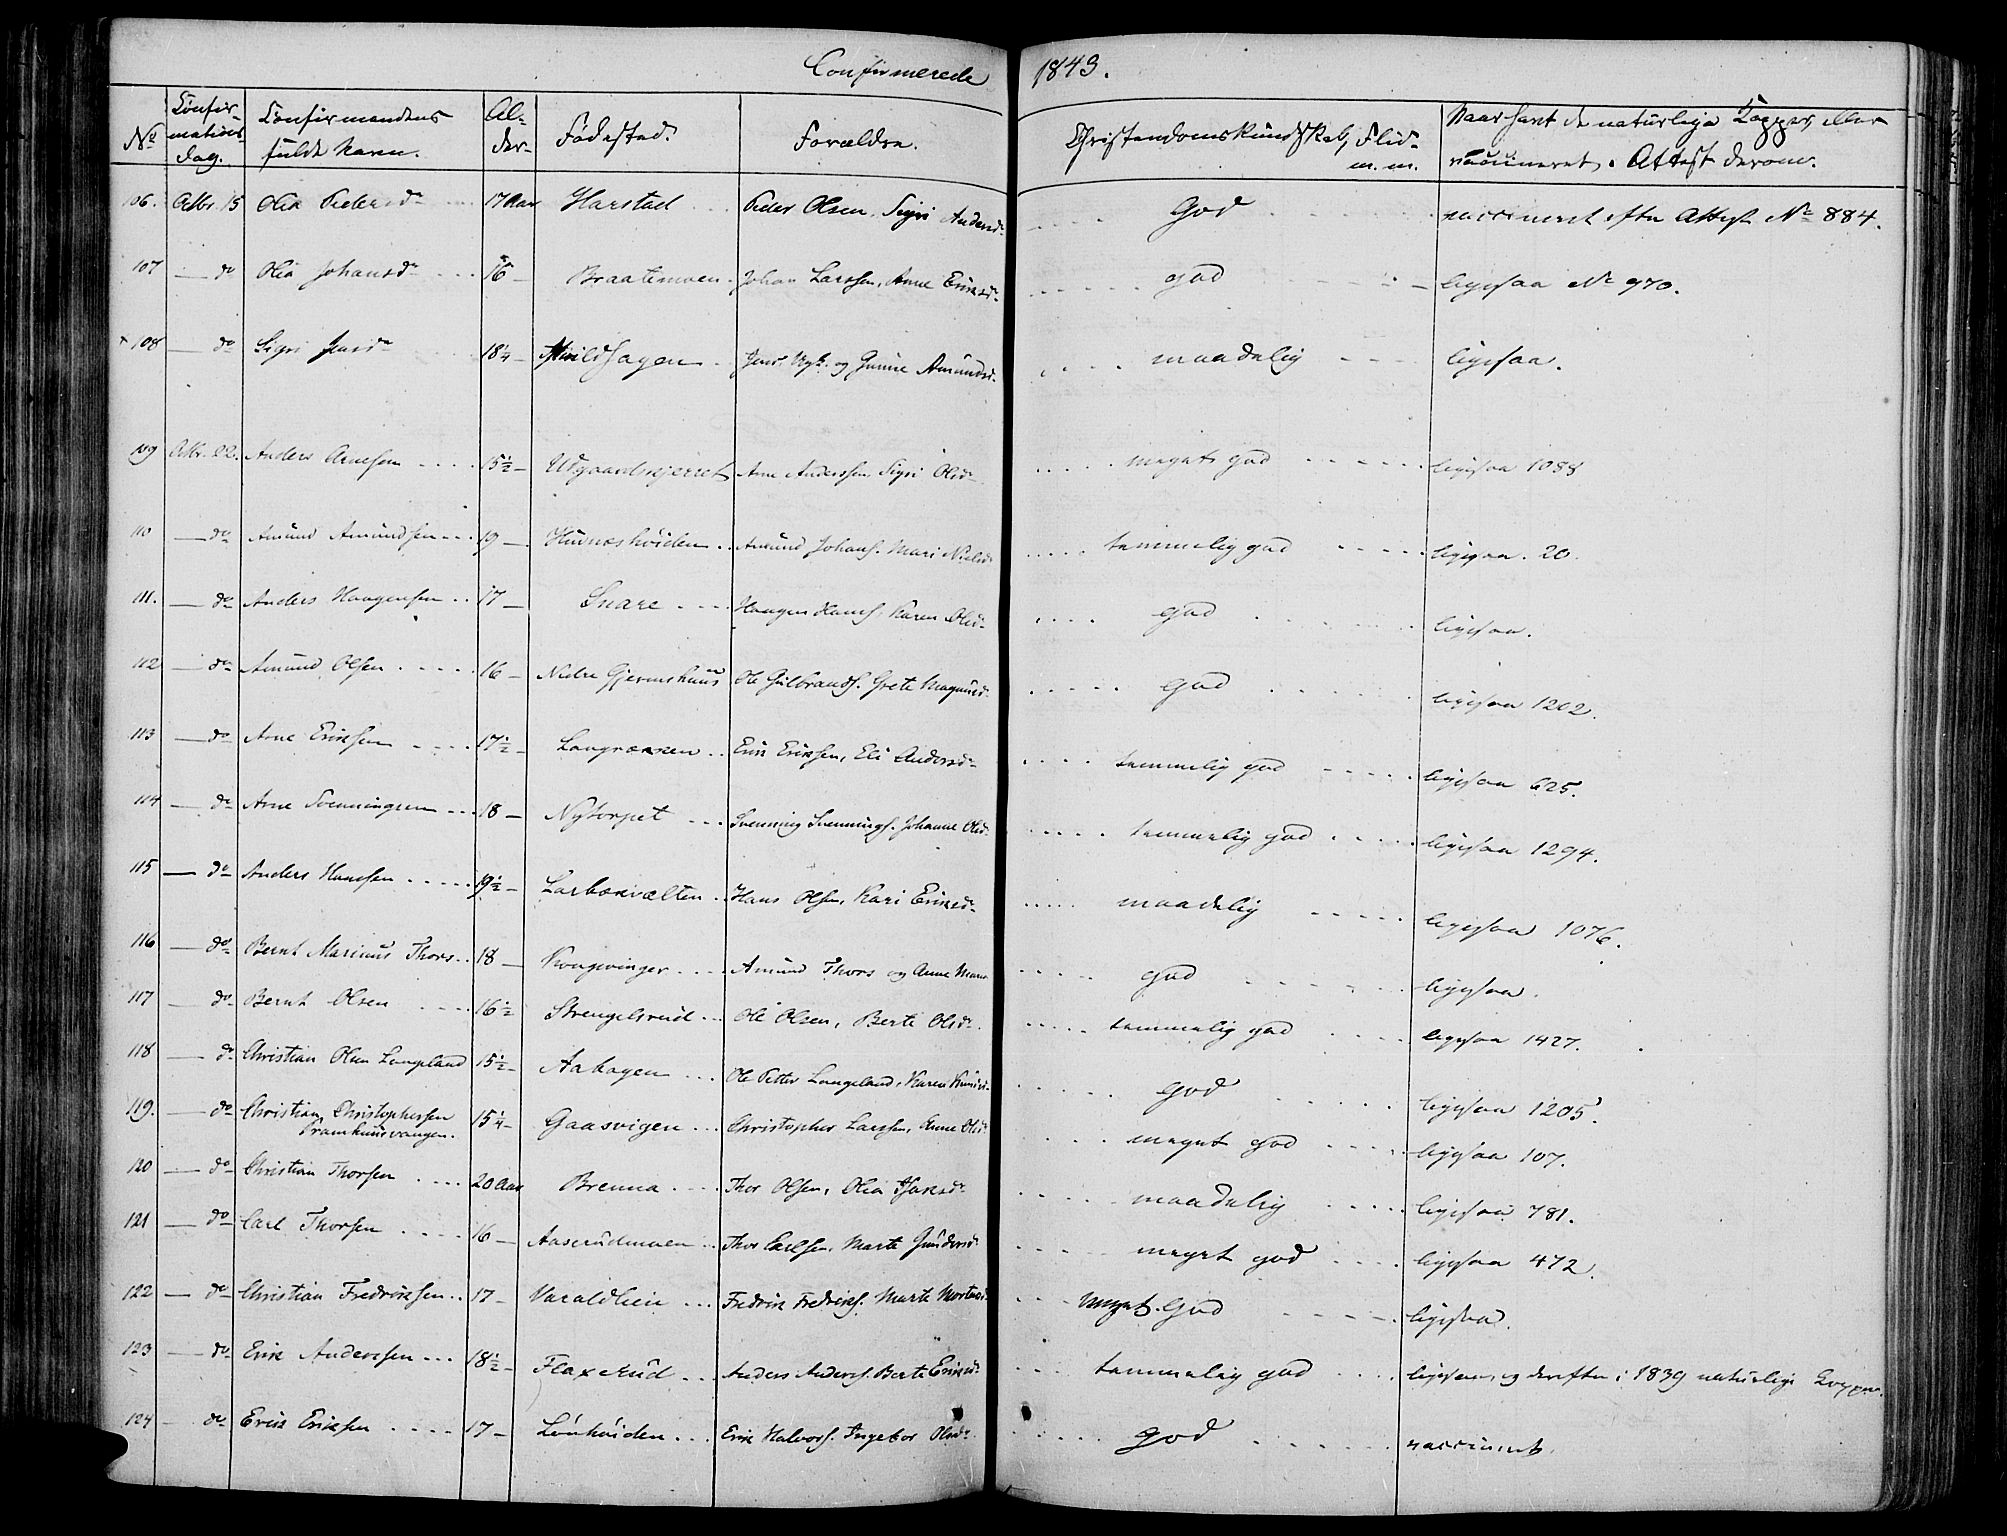 Confirmerede 1843.
No Confirmations dag. Confirmandens fulde Navn. Alder Fødested. Forældre. Christendomskundskab, Flid m. m. Naar havt de naturlige Kopper, eller vaccineret. Attest derom.
106. Octbr. 15 Olia Pedersdr 17 Aar Harstad Peder Olsen, Sigri Andersdr God vaccineret efter Attest No 884.
107 — do Olia Johansdr 16 — Braatemoen Johan Larssen, Anne Eriksdr god ligesaa No 970.
108 — do Sigri Jensdr 18¼ — Jens og Gunne Amundsdr maadelig ligesaa.
109 Octbr. 22. Anders Arnesen 15½ — Udgaardskjerret Arne Anderssen, Sigri Olsdr meget god ligesaa 1088
110 — do Amund Amundsen 19 — Hudnæshöiden Amund Johans. Mari Nielsdr temmelig god ligesaa. 20.
111. — do Anders Haagensen 17 — Snare Haagen Hans. Karen Olsdr god ligesaa.
112 — do Amund Olsen 16 — Nedre Gjermshuus Ole Gulbrands. Grete Magnusdr god ligesaa 1202.
113 — do Arne Eriksen 17½ — Langrænnen Erik Eriksen, Eli Andersdr temmelig god ligesaa 625.
114 — do Arne Svenningsen 18 — Nytorpet Svenning Svennings. Johanne Olsdr temmelig god ligesaa 1294.
115 — do Anders Hansen 19½ — Larbækvælten Hans Olsen, Kari Eriksdr maadelig ligesaa 1076.
116 — do Bernt Marinus Thors 18 — Kongsvinger Amund Thors og Anne Marie god ligesaa.
117 — do Bernt Olsen 16½ Strengelsrud Ole Olsen, Berte Olsdr temmelig god ligesaa 1427.
118 — do Christian Olsen Langeland 15½ — Aabogen Ole Petter Langeland, Karen god ligesaa 1205.
119. — do Christian Christophersen Pramhuusvangen. 15¼ — Gaasvigen Christopher Larssen, Anne Olsdr meget god ligesaa 107.
120 — do Christian Thorsen 20 Aar Brenna Thor Olsen, Olia maadelig ligesaa 781.
121 — do Carl Thorsen 16 — Aaserudmoen Thor Carlsen, Marte Gundersdr meget god ligesaa 472.
122 — do Christian Fredriksen 17 — Varaldlien Fredrik Fredriks. Marte Mortensdr meget God ligesaa.
123 — do Erik Anderssen 18½ — Flaxerud Anders Anders. Berte Eriksdr temmelig god ligesaa, og derefter i 1839 naturlige Kopper.
124 — do Erik Eriksen 17 — Lönhöiden Erik Halvors. Ingebor Olsdr god vaccineret